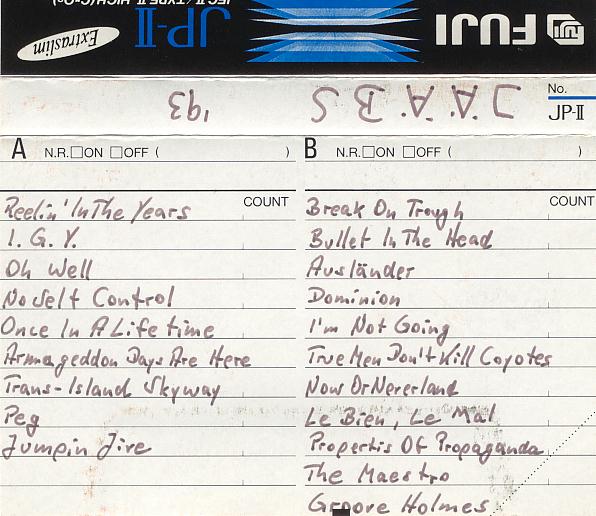 JEC II/TYPE II HIGH(CrO₂)
Extraslim
JP-II
FUJI
FUJI
JAABS
'93
No.
JP-II
A N.R.□ON □OFF ( )
COUNT
Reelin' In The Years
I.G.Y.
Oh Well
No Self Control
Once In A Lifetime
Armageddon Days Are Here
Trans-Island Skyway
Peg
Jumpin Jive
B N.R.□ON □OFF ( )
COUNT
Break On Trough
Bullet In The Head
Ausländer
Dominion
I'm Not Going
True Men Don't Kill Coyotes
Now Or Neverland
Le Bien, Le Mal
Propertis Of Propaganda
The Maestro
Groove Holmes